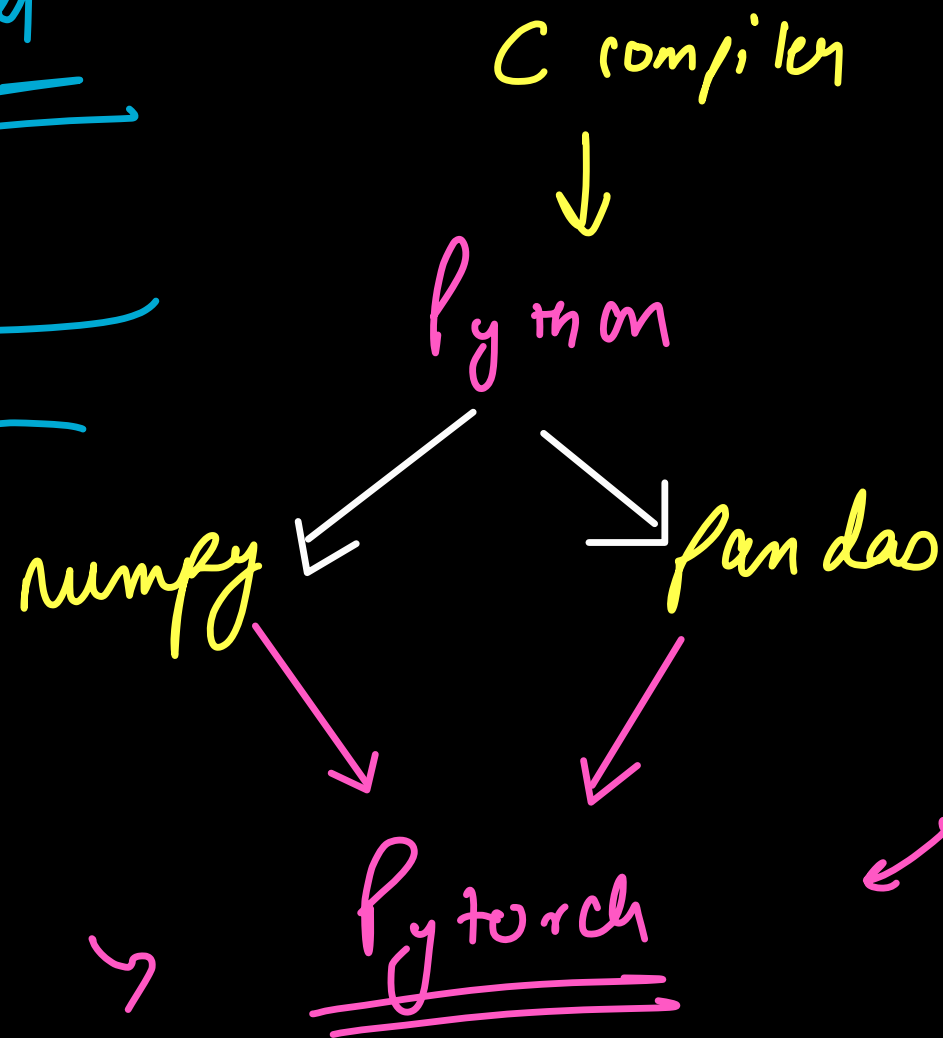 C compiler
Python
numpy
pandas
Pytorch